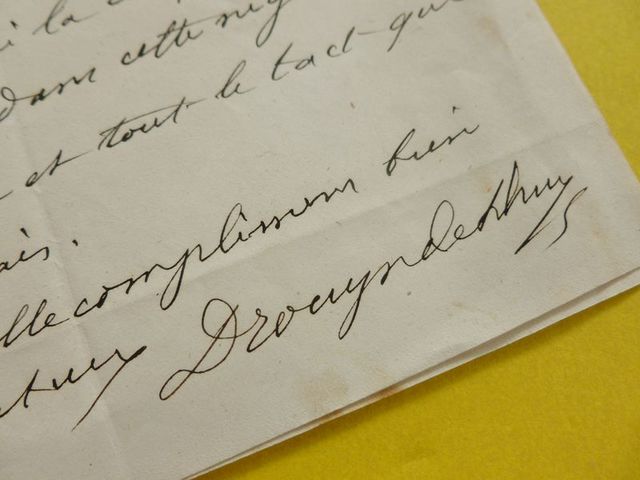 à la
dans cette nég
et tout le tact que
ais.
ille compliments bien
Drouyn de Lhuys